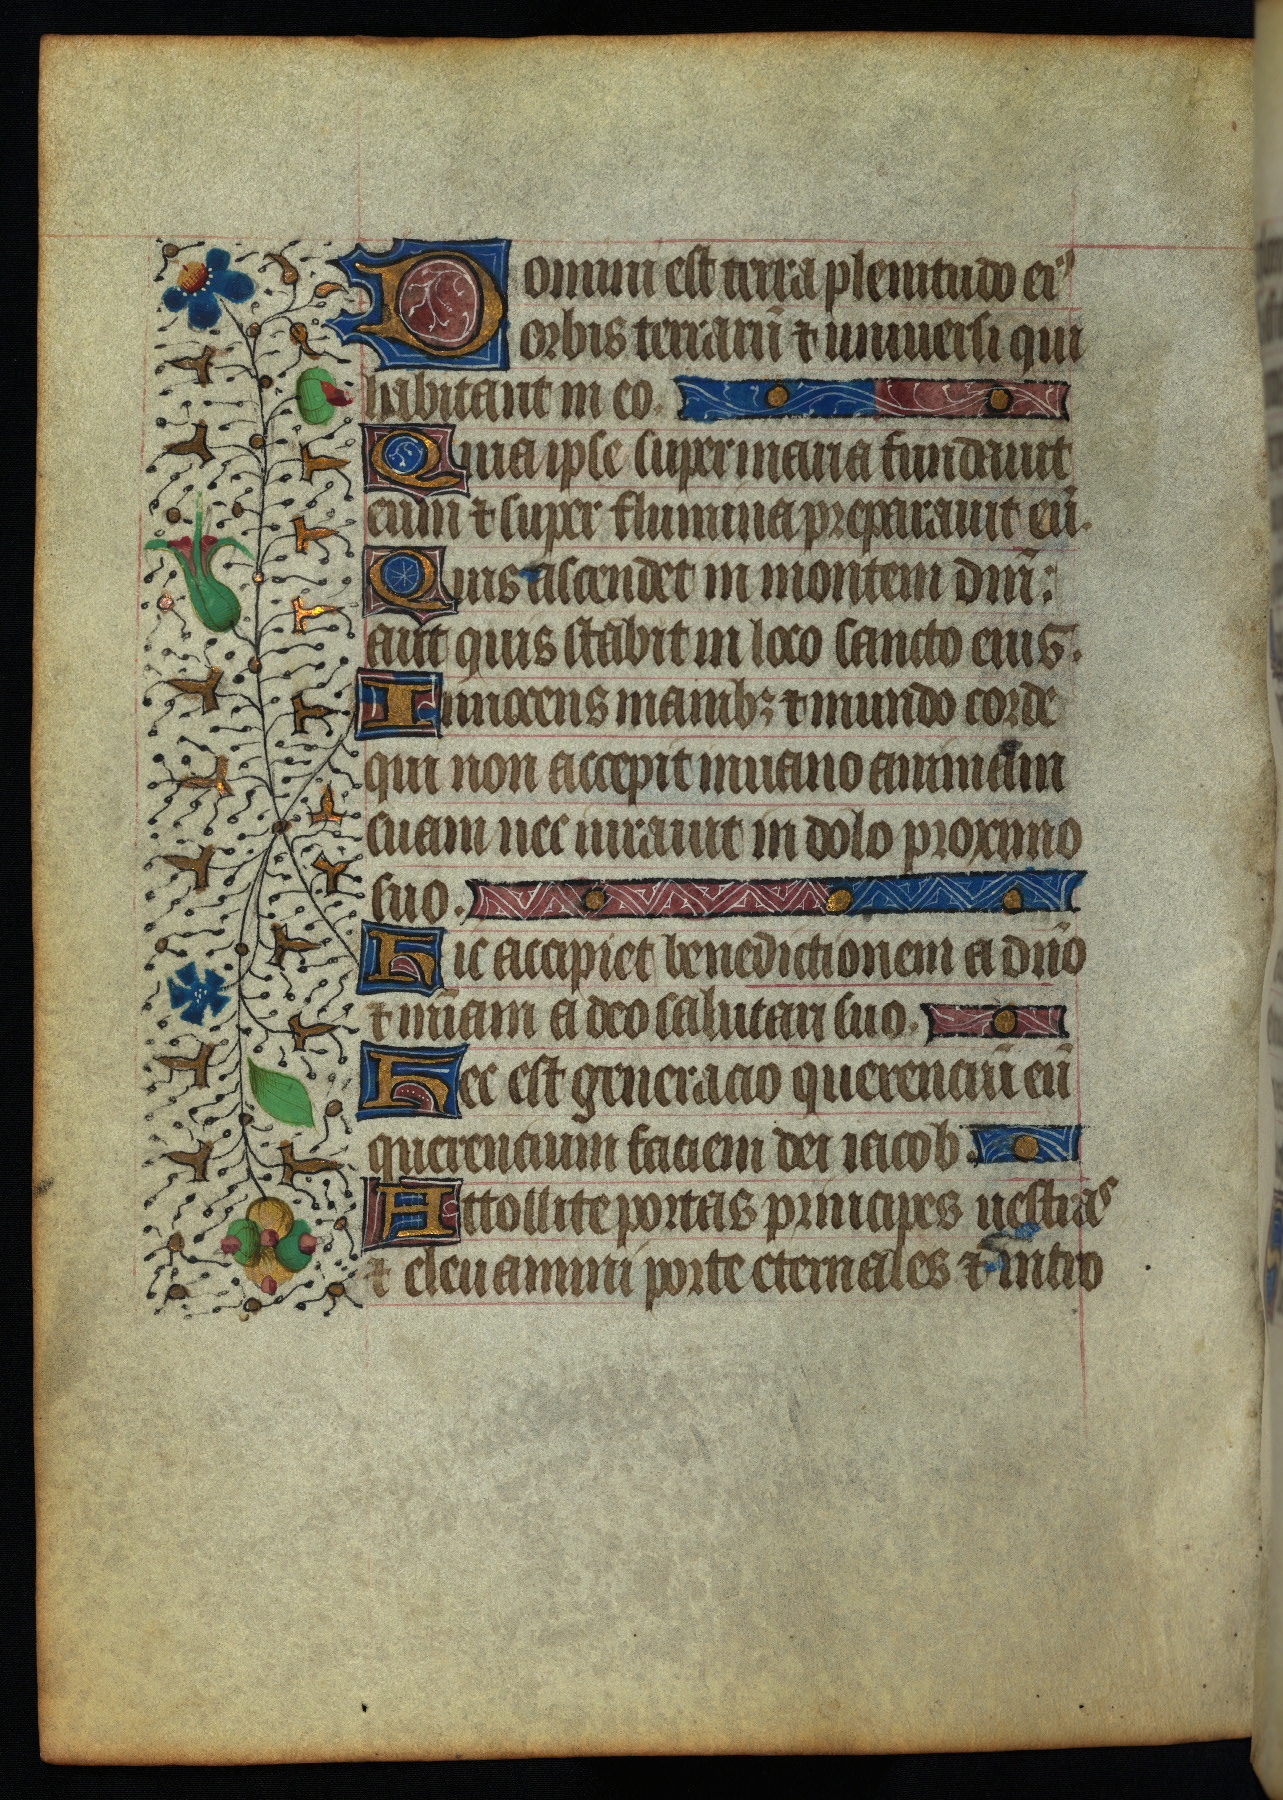 Domini est terra plenitudo ei⁹
orbis terrarū ⁊ uniuersi qui
habitant in eo.
Quia ipse super maria fundauit
eum ⁊ super flumina preparauit eū.
Quis ascendet in montem dn̄i:
aut quis stabit in loco sancto eius.
Innocens manibꝫ ⁊ mundo corde
qui non accepit in uano animam
suam nec iurauit in dolo proximo
suo.
Hic accipiet benedictionem a dn̄o
⁊ mīam a deo salutari suo.
Hec est generacio querenciū eū
querencium faciem dei iacob.
Attollite portas principes uestras
⁊ eleuamini porte eternales ⁊ intro